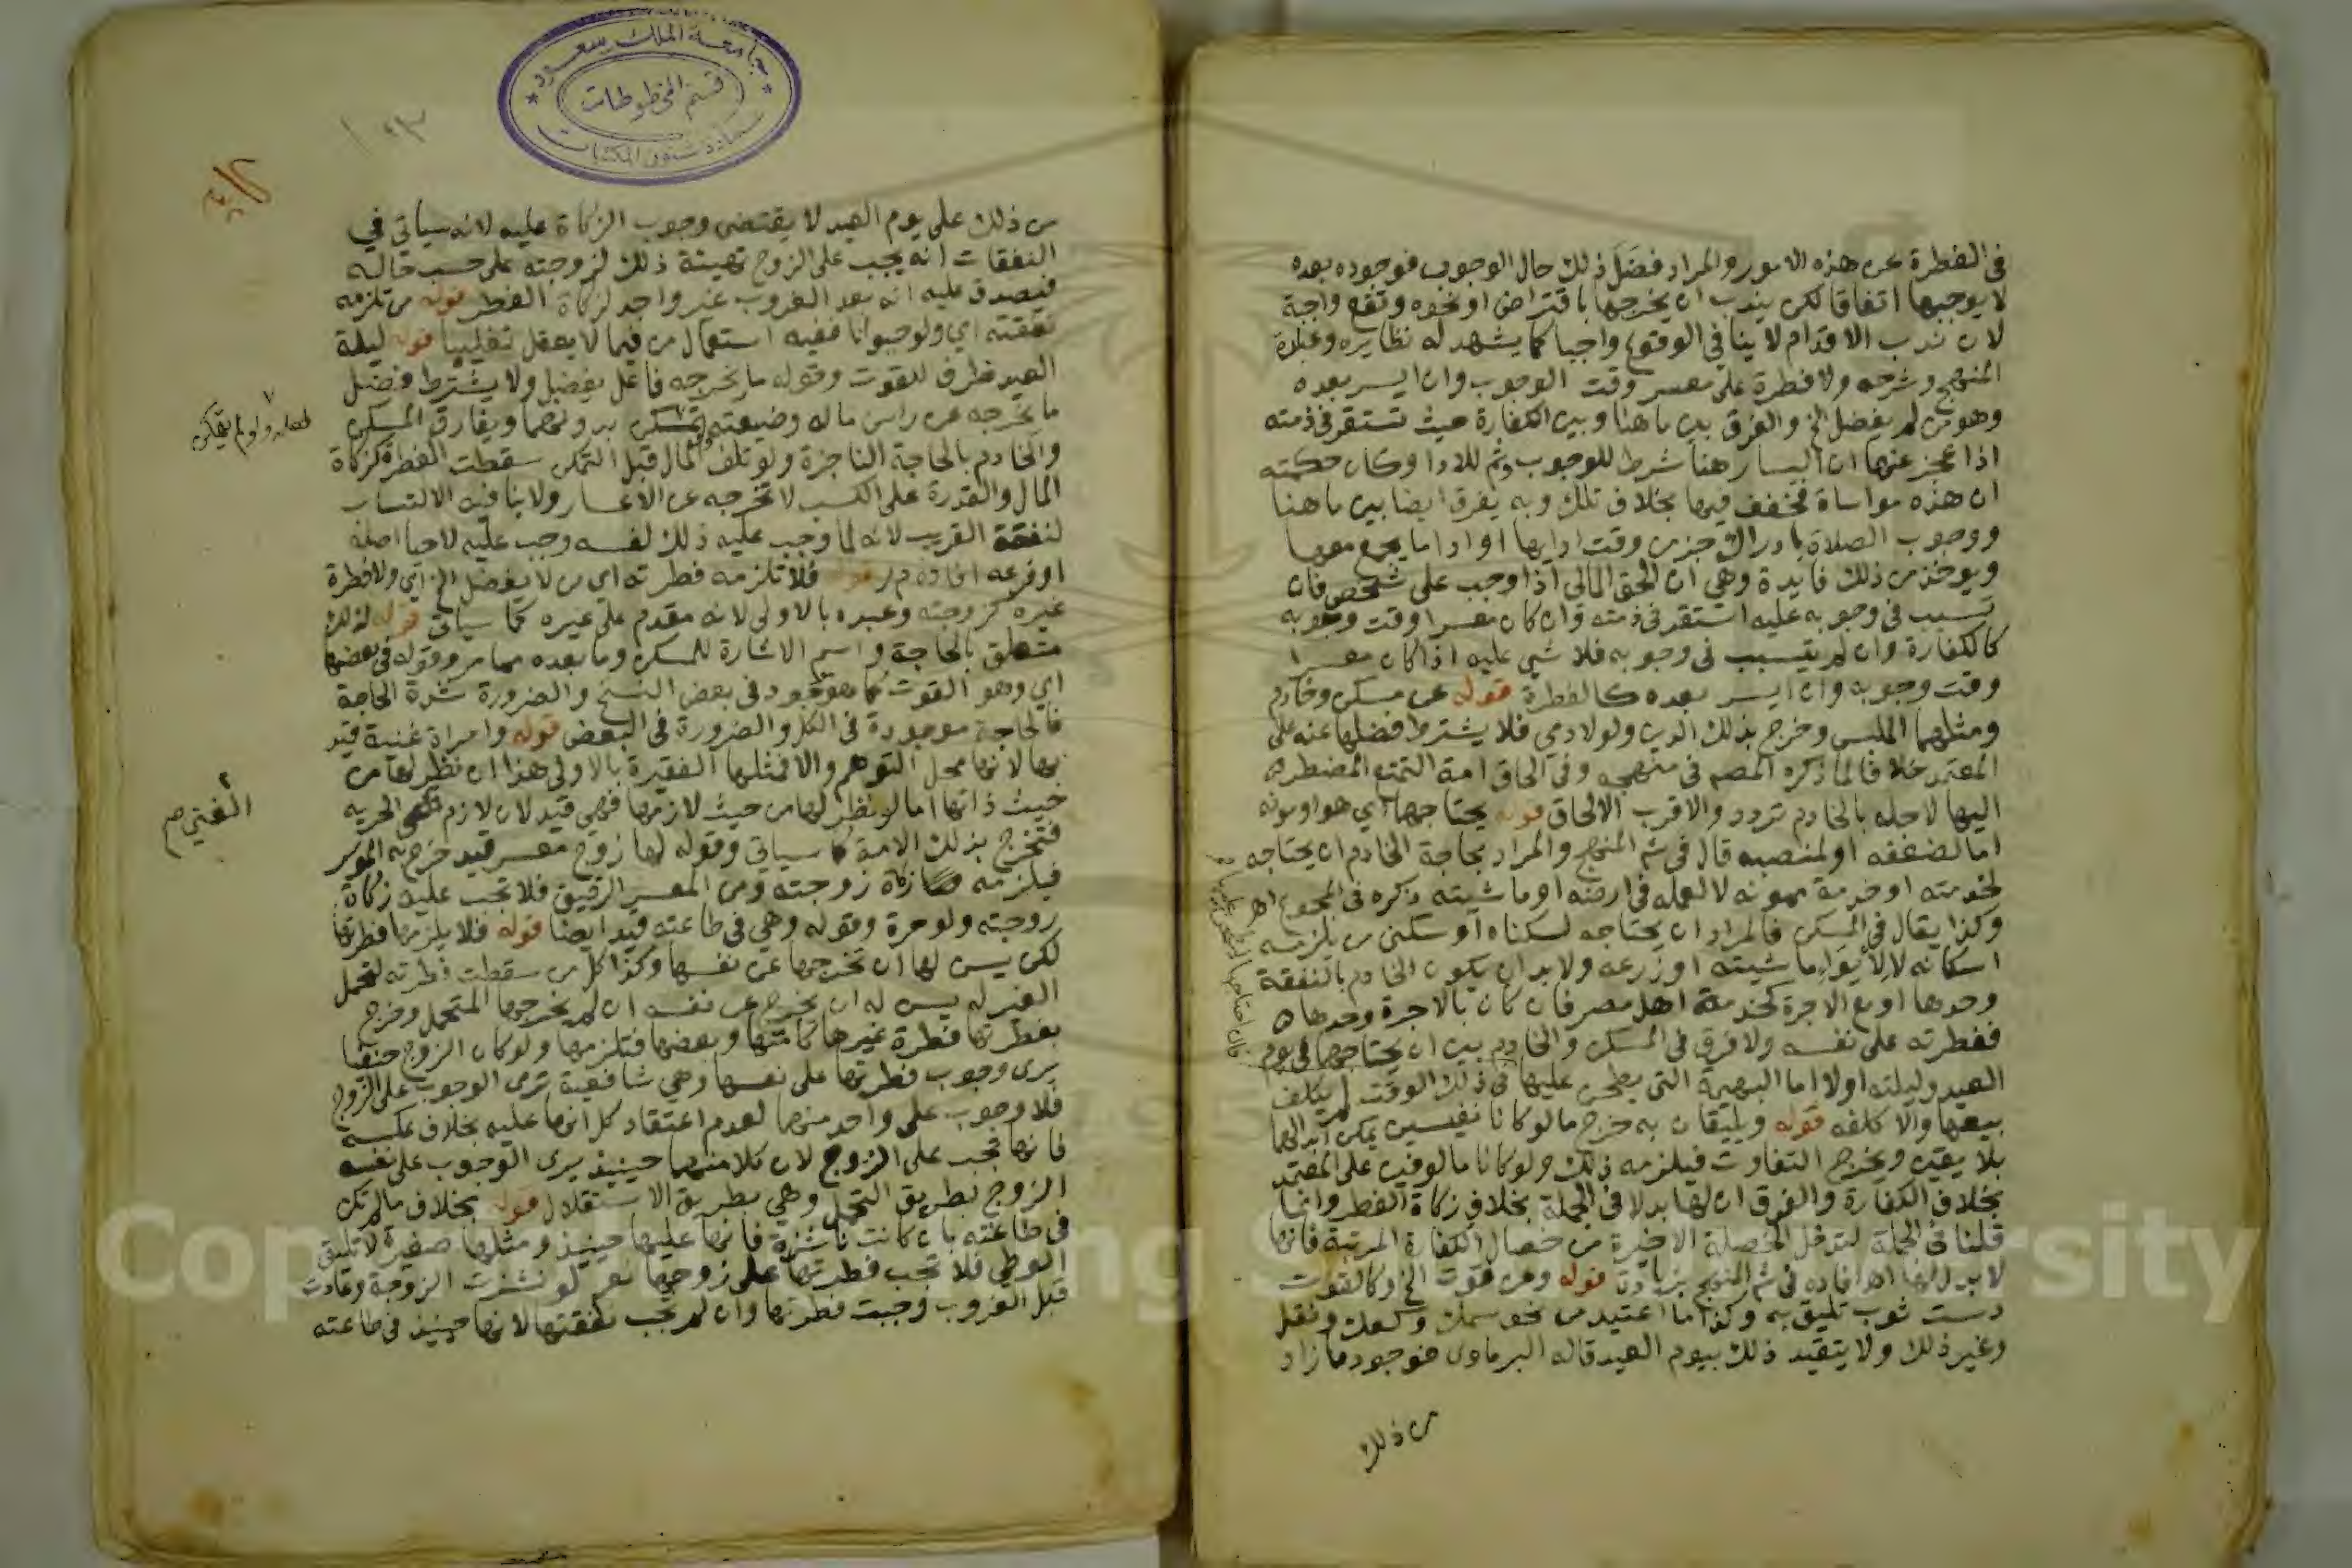 في الفطرة عن هذه الامور والمراد فضل ذلك حال الوجوب فوجوده بعده
لا يوجبها اتفاقا لكن يندب ان يخرجها باقتراض او نحوه وتقع واجبة
لان ندب الاقدام لا ينافي الوقوع واجبا كما يشهد له نظايره وعبارة
المنهج وشرحه ولا فطرة على معسر وقت الوجوب وان ايسر بعده
وهو من لم يفضل الخ والفرق بين ما هنا وبين الكفارة حيث تستقر في ذمته
اذا عجز عنها ان اليسار هنا شرط للوجوب وثم للادا وكان حكمته
ان هذه مواساة فخفف فيها بخلاف تلك وبه يفرق ايضا بين ما هنا
ووجوب الصلاة بادراك جزء من وقت ادايها او ادا ما يجمع معها
ويوخذ من ذلك فايدة وهي ان الحق المالي اذا وجب على شخص فان
تسبب في وجوبه عليه استقر في ذمته وان كان معسرا وقت وجوبه
كالكفارة وان لم يتسبب في وجوبه فلا شي عليه اذا كان معسرا
وقت وجوبه وان ايسر بعده كالفطرة قوله عن مسكن وخادم
ومثلهما الملبس وخرج بذلك الدين ولو لادمي فلا يشترط فضلها عنه على
المعتمد خلافا لما ذكره المصم في منهجه وفي الحاق امة التمتع المضطر
اليها لاجله بالخادم تردد والاقرب الالحاق قوله يحتاجها اي هو او مونه
اما لضعفه او لمنصبه قال في شم المنهج والمراد بحاجة الخادم ان يحتاجه
لخدمته او خدمة ممونه لا لعمله في ارضه او ماشيته ذكره في المجموع اهـ
وكذا يقال في المسكن فالمراد ان يحتاجه لسكناه او سكنى من يلزمه
اسكانه لا لايواء ماشيته او زرعه ولا بد ان يكون الخادم بالنفقة
وحدها او مع الاجرة كخدمة اهل مصر فان كان بالاجرة وحدها
ففطرته على نفسه ولا فرق في المسكن والخادم بين ان يحتاجها في يوم
العيد وليلته اولا اما البهيمة التي يطحن عليها في ذلك الوقت لم يكلف
بيعها والا كلفه قوله ويليقان به خرج ما لو كانا نفيسين يمكن ابدالهما
بلا يقين ويخرج التفاوت فيلزمه ذلك ولو كانا مالوفين على المعتمد
بخلاف الكفارة والفرق ان لها بدلا في الجملة بخلاف زكاة الفطر وانما
قلنا في الجملة لتدخل الخصلة الاخيرة من خصال الكفارة المرتبة فانها
لا بدل لها اهـ افاده في شم المنهج بزيادة قوله وعن قوت الخ وكالقوت
دست ثوب تليق به وكذا ما اعتيد من نحو سمك وكعك ونقل
وغير ذلك ولا يتقيد ذلك بيوم العيد قاله البرماوي فوجود ما زاد
من ذلك
جامعة الملك سعود
قسم المخطوطات
عمادة شئون المكتبات
من ذلك على يوم العيد لا يقتضي وجوب الزكاة عليه لانه سياتي في
النفقات انه يجب على الزوج تهيئة ذلك لزوجته على حسب حاله
فيصدق عليه انه بعد الغروب غير واجد لزكاة الفطر قوله من تلزمه
نفقته اي ولو حيوانا ففيه استعمال من فيما لا يعقل تغليبا قوله ليلة
العيد ظرف للقوت وقوله ما يخرجه فاعل يفضل ولا يشترط فضل
ما يخرجه عن راس ماله وضيعته تمسكن بدونهما ويفارق المسكن
والخادم بالحاجة الناجزة ولو تلف المال قبل التمكن سقطت الفطرة كزكاة
المال والقدرة على الكسب لا تخرجه عن الاعسار ولا ينافيه الاكتساب
لنفقة القريب لانه لما وجب عليه ذلك لنفسه وجب عليه لاحيا اصله
او فرعه افاده م ر قوله فلا تلزمه فطرته اي من لا يفضل الخ اي ولا فطرة
غيره كزوجته وعبده بالاولى لانه مقدم على غيره كما سياتي قوله لذلك
متعلق بالحاجة واسم الاشارة للمسكن وما بعده مما مر وقوله في بعضها
اي وهو القوت كما هو موجود في بعض النسخ والضرورة شدة الحاجة
فالحاجة موجودة في الكل والضرورة في البعض قوله وامراة غنية قيد
بها لانها محل التوهم والا فمثلها الفقيرة بالاولى هذا ان نظر لها من
حيث ذاتها اما لو نظر لها من حيث لازمها فهي قيد لان لازم الحرية
فتخرج بذلك الامة كما سياتي وقوله لها زوج معسر قيد خرج به الموسر
فيلزمه زكاة زوجته ومن المعسر الرقيق فلا تجب عليه زكاة
زوجته ولو حرة وقوله وهي في طاعته قيد ايضا قوله فلا يلزمها فطرتها
لكن يسن لها ان تخرجها عن نفسها وكذا كل من سقطت فطرته لتحمل
الغير له يسن له ان يخرج عن نفسه ان لم يخرجها المتحمل وخرج
بفطرتها فطرة غيرها كامتها وبعضها فتلزمها ولو كان الزوج حنفيا
يرى وجوب فطرتها على نفسها وهي شافعية ترى الوجوب على الزوج
فلا وجوب على واحد منهما لعدم اعتقاد كل انها عليه بخلاف عكسه
فانها تجب على الزوج لان كلا منهما حينيذ يرى الوجوب على نفسه
الزوج بطريق التحمل وهي بطريق الاستقلال قوله بخلاف ما لم تكن
في طاعته بان كانت ناشزة فانها عليها حينيذ ومثلها صغيرة لا تطيق
الوطي فلا تجب فطرتها على زوجها نعم لو نشزت الزوجة وعادت
قبل الغروب وجبت فطرتها وان لم تجب نفقتها لانها حينيذ في طاعته
لعله ولو لم يتمكن
الغني صم